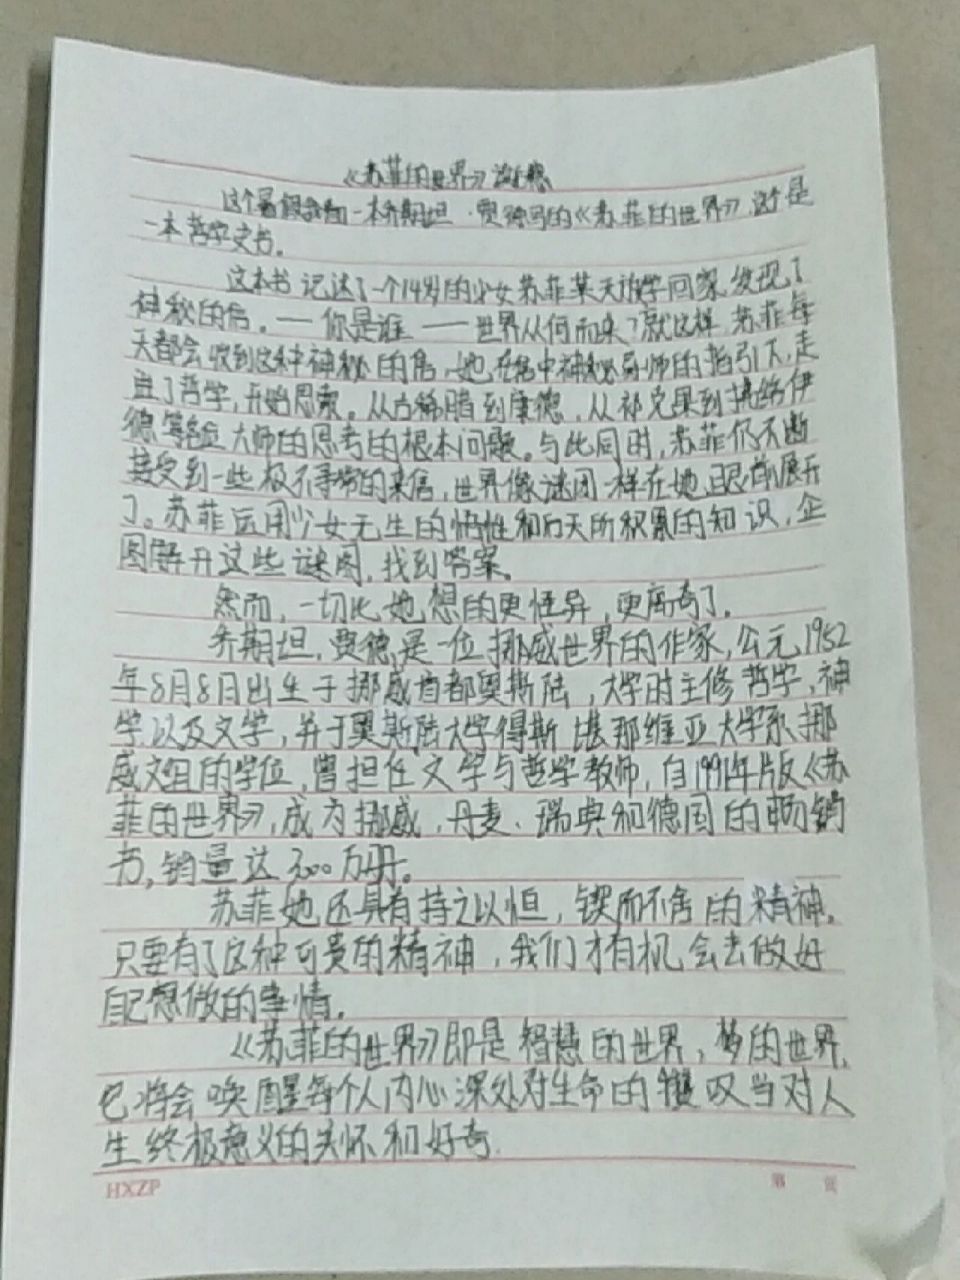 《苏菲的世界》读后感
这个暑假我看一本乔斯坦·贾德写的《苏菲的世界》,这个是
一本哲学史书。
这本书记述了一个14岁的少女苏菲某天放学回家,发现了
神秘的信。——你是谁——世界从何而来?就这样,苏菲每
天都会收到这种神秘的信,她在信中神秘导师的指引下,走
进了哲学,开始思索。从古希腊到康德,从祁克果到佛洛伊
德等各位大师的思考的根本问题。与此同时,苏菲仍不断
接受到一些极不寻常的来信,世界像谜团一样在她眼前展开
了。苏菲运用少女天生的悟性和后天所积累的知识,企
图解开这些谜团,找到答案。
然而,一切比她想的更怪异,更离奇了。
乔斯坦,贾德,是一位挪威世界的作家,公元1952
年8月8日出生于挪威首都奥斯陆,大学时主修哲学,神
学以及文学,并于奥斯陆大学得斯堪那维亚大学系挪
威文组的学位,曾担任文学与哲学教师,自1991年版《苏
菲的世界》,成为挪威,丹麦、瑞典和德国的畅销
书,销量达300万册。
苏菲她还具有持之以恒,锲而不舍的精神。
只要有了这种可贵的精神,我们才有机会去做好
自己想做的事情。
《苏菲的世界》即是智慧的世界,梦的世界,
它将会唤醒每个人内心深处对生命的赞叹当对人
生终极意义的关怀和好奇.
HXZP 第 页